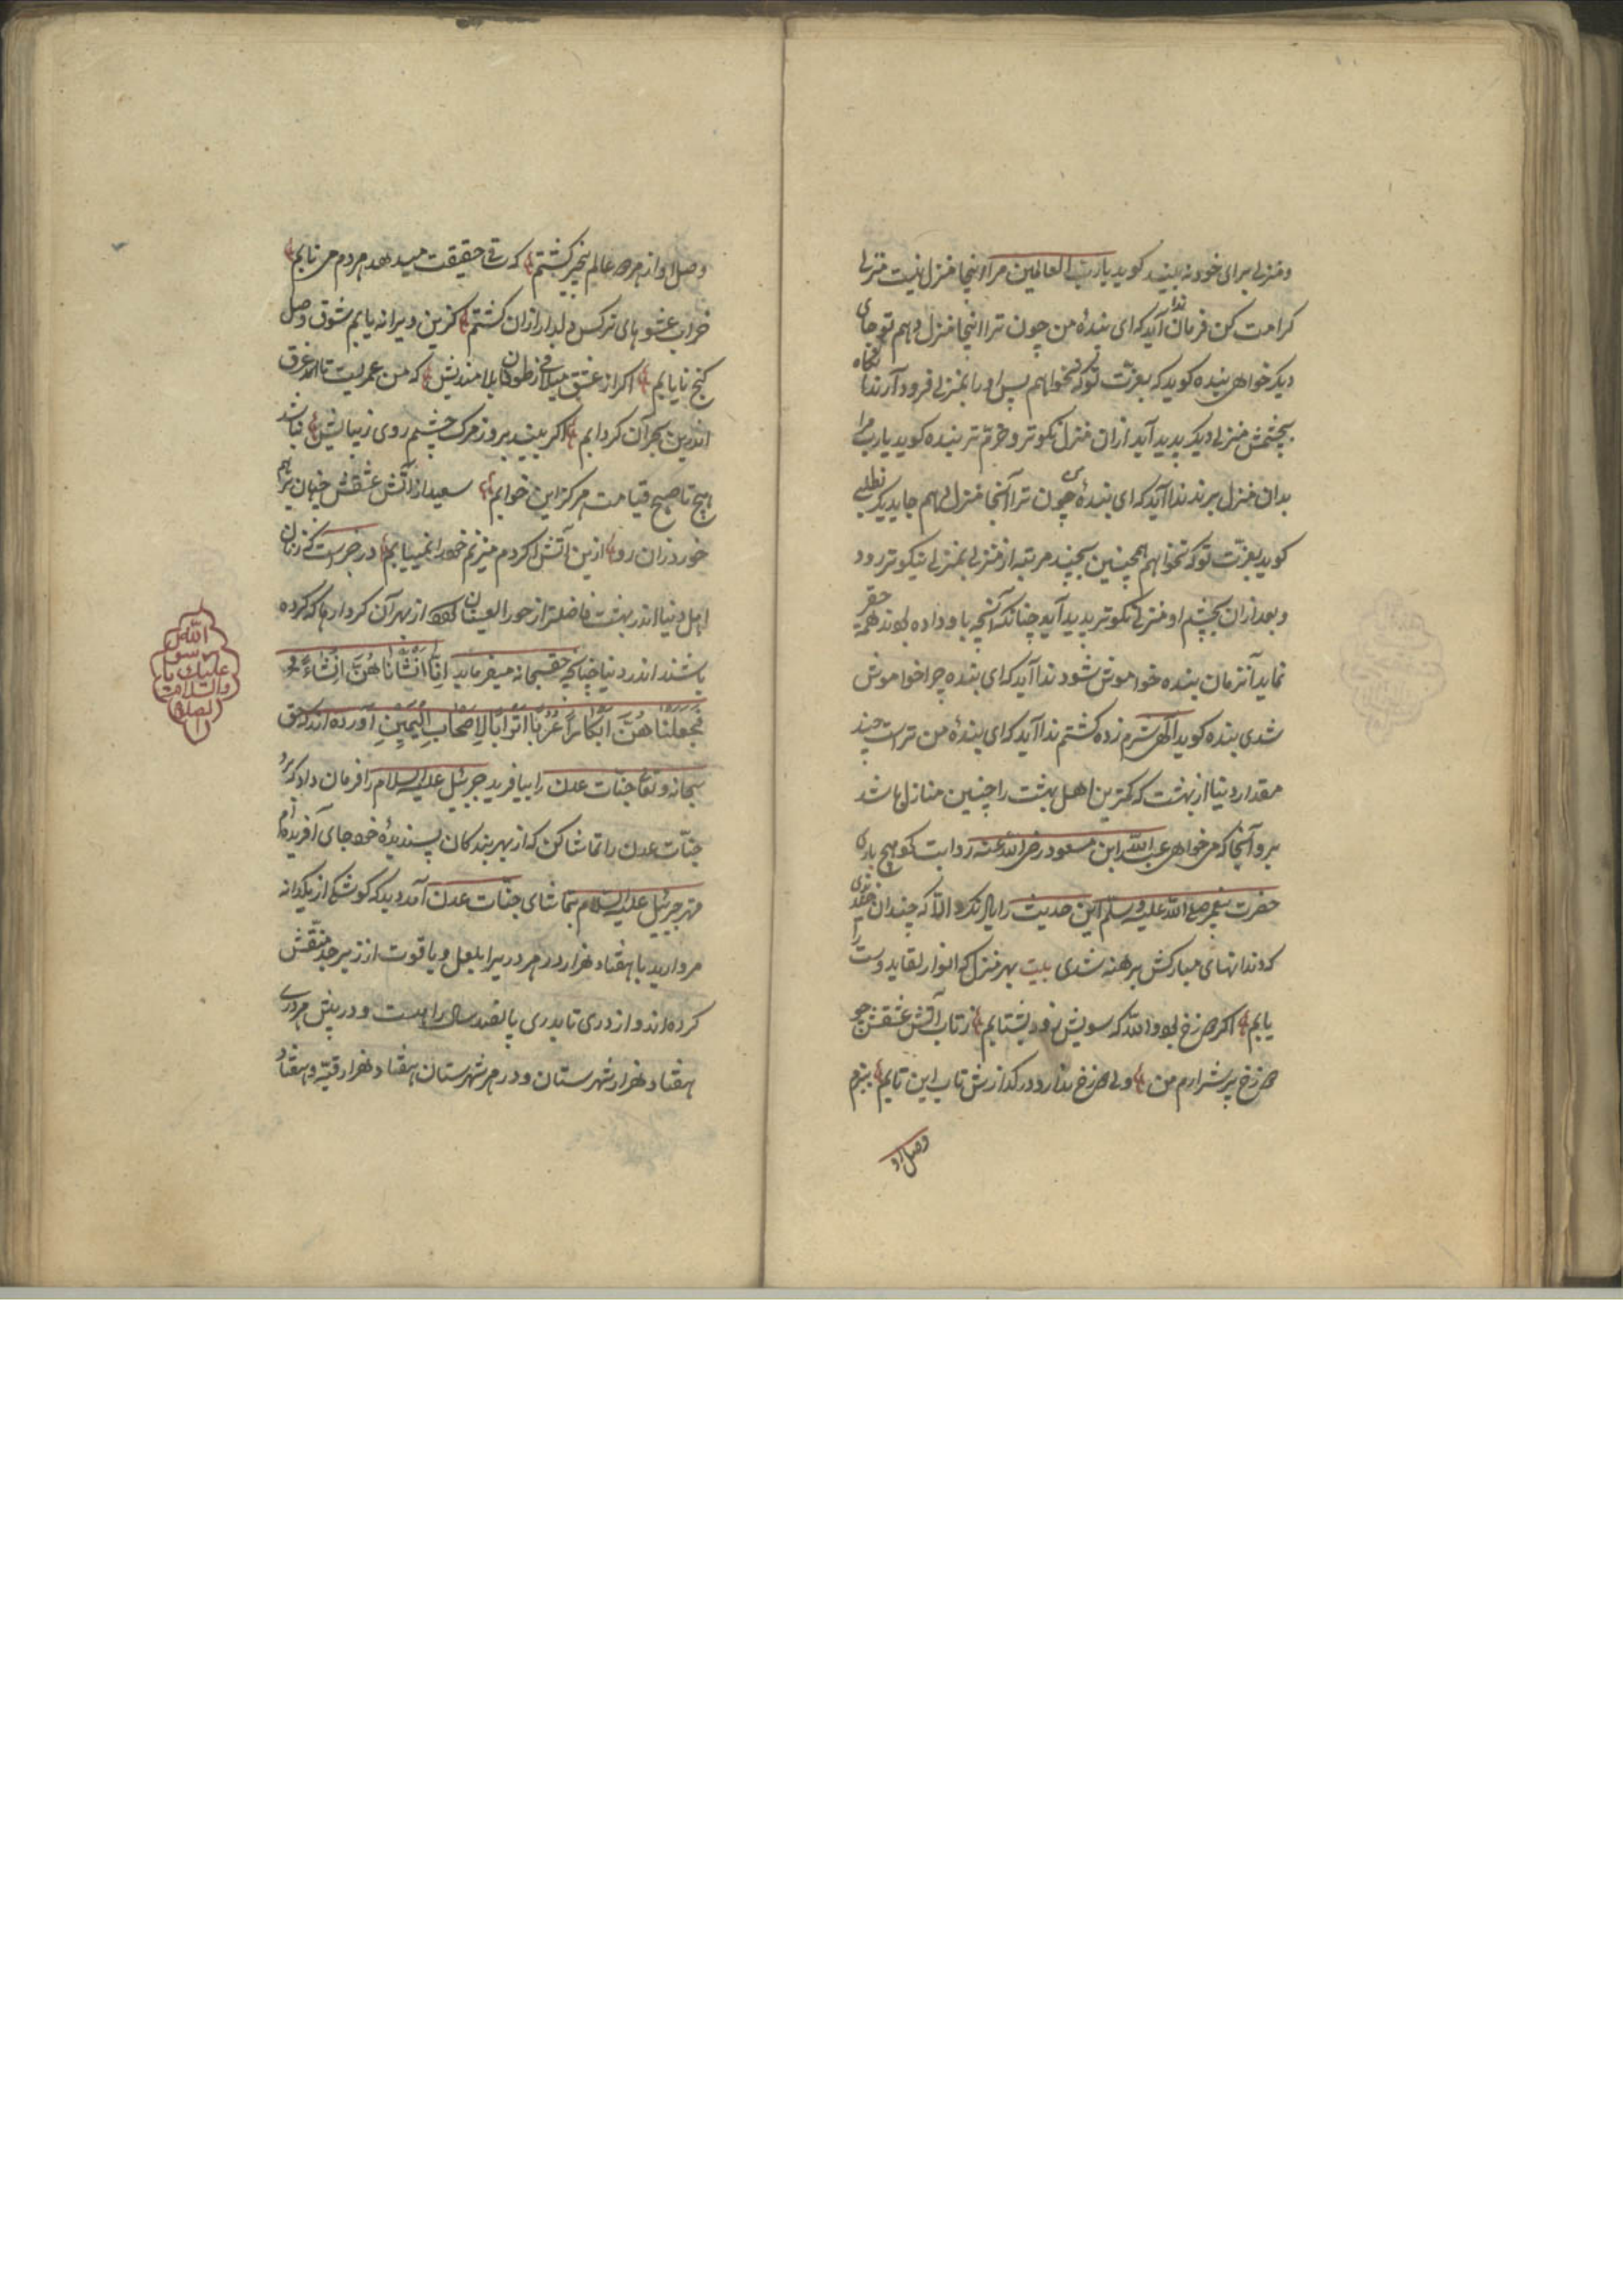 ومنزلی برای خود نه بیند کوید یا رب العالمین مرا اینجا منزل نیست منزلی
کرامت کن فرمان آید که ای بندهٔ من چون ترا اینجا منزل دهم تو جای
دیکر خواهی بنده کوید که بعزت تو که نخواهم پس او را بمنزلی فرود آرند
بچشمش منزلی دیکر پدید آید ازان منزل نکوتر و خرّم تر بنده کوید یا رب مرا
بدان منزل برند ندا آید که ای بندهٔ چون ترا آنجا منزل دهم جای دیکر نطلبی
کوید بعزت تو که نخواهم همچنین بچند مرتبه از منزلی بمنزلی نیکوتر رود
و بعد ازان بچشم او منزلی نکوتر پدید آید چنانکه آنچه باو داده بوند همه حقیر
نماید آنزمان بنده خواموش شود ندا آید که ای بنده چرا خواموش
شدی بنده کوید الهی شرم زده کشتم ندا آید که ای بندهٔ من تراست چند
مقدار دنیا از بهشت که کمترین اهل بهشت را چنین منازل باشد
برو آنجا که می خواهی عبد الله ابن مسعود رضی الله عنه روایت کو هیچ باری
حضرت پیغمبر صلی الله علیه وسلم این حدیث را یاد نکرد الا که چندان خندیدی
که دندانهای مبارکش برهنه شدی بیت بهر منزل که انوار لقاید وست را
یابم اکر دوزخ بود والله که سویش زود بشتابم ز تاب آتش عشقش چو
دوزخ پر شرارم من ولی دوزخ ندارد در کدازش تاب این تابم بنزم
وصل او
وصل او از هر دو عالم بیخبر کشتم که ساقی حقیقت میدهد هر دم می نابم
خراب عشوهای ترکس دلدار ازان کشتم کزین ویرانه یابم شوق وصل
کنج نایابم اکر از عشق میلافی ز طوفان بلا مندیش که من عمریست تا اندر غرق
اندرین بحر آن کردابم اکر بیند بروز مرک چشمم روی زیبایش نباشد
هیچ تا صبح قیامت هرکز این خوابم سعیدا ز آتش عشقش چنان برهم
خورد زان رو ازین آتش که کردم میزنم خود را نمییابم در خبرست که زنان
اهل دنیا اندر بهشت فاضلتر از حور العینان بوند از بهر آن کردارها که کرده
باشند اندر دنیا چنانچه حقسبحانه میفرماید اِنَّا اَنْشَأنَاهُنَّ اِنْشَاءً
فَجَعَلْنَاهُنَّ اَبْكَاراً عُرُباً اَتْرَاباً لِاَصْحَابِ الْيَمِينِ آورده اند که حق
سبحانه و تعالی جنّات عدن را بیافرید جبرئیل علیه السلام را فرمان داد که برو
جنّات عدن را تماشا کن که از بهر بندکان پسندیدهٔ خود جای آفریده ام
مهتر جبرئیل علیه السلام بتماشای جنّات عدن آمد دید که کوشکی از یکدانه
مروارید با هفتاد هزار در هر دریرا بلعل و یاقوت از زبرجد منقّش
کرده اند و از دری تا بدری پانصد ساله راهست و در پیش هر دری
هفتاد هزار شهرستان و در هر شهرستان هفتاد هزار قبّه و هفتاد
الله
رسول
علیك یا
والسلام
الصلوة